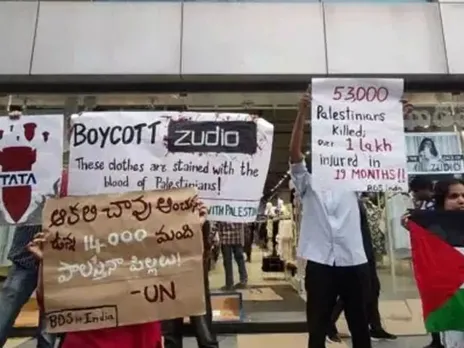 TATA
BOYCOTT ZUDIO
These clothes are stained with the
blood of Palestinians!
WITH PALESTINE
53,000
Palestinians
Killed,
over 1 lakh
injured in
19 MONTHS!!
BDS India
ఆకలి చావు అంచున
ఉన్న 14000 మంది
పాలస్తీనా పిల్లలు!
-UN
BDS in India
ZUDIO